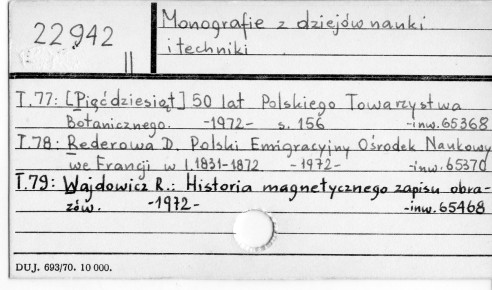 22942
II
Monografie z dziejów nauki
i techniki
T.77: [Pięćdziesiąt] 50 lat Polskiego Towarzystwa
Botanicznego. -1972- s. 156 -inw. 65368
T.78: Rederowa D. Polski Emigracyjny Ośrodek Naukowy
we Francji w l. 1831-1872 -1972- -inw. 65370
T.79: Wajdowicz R.: Historia magnetycznego zapisu obra-
zów. -1972- -inw. 65468
DUJ. 693/70. 10 000.